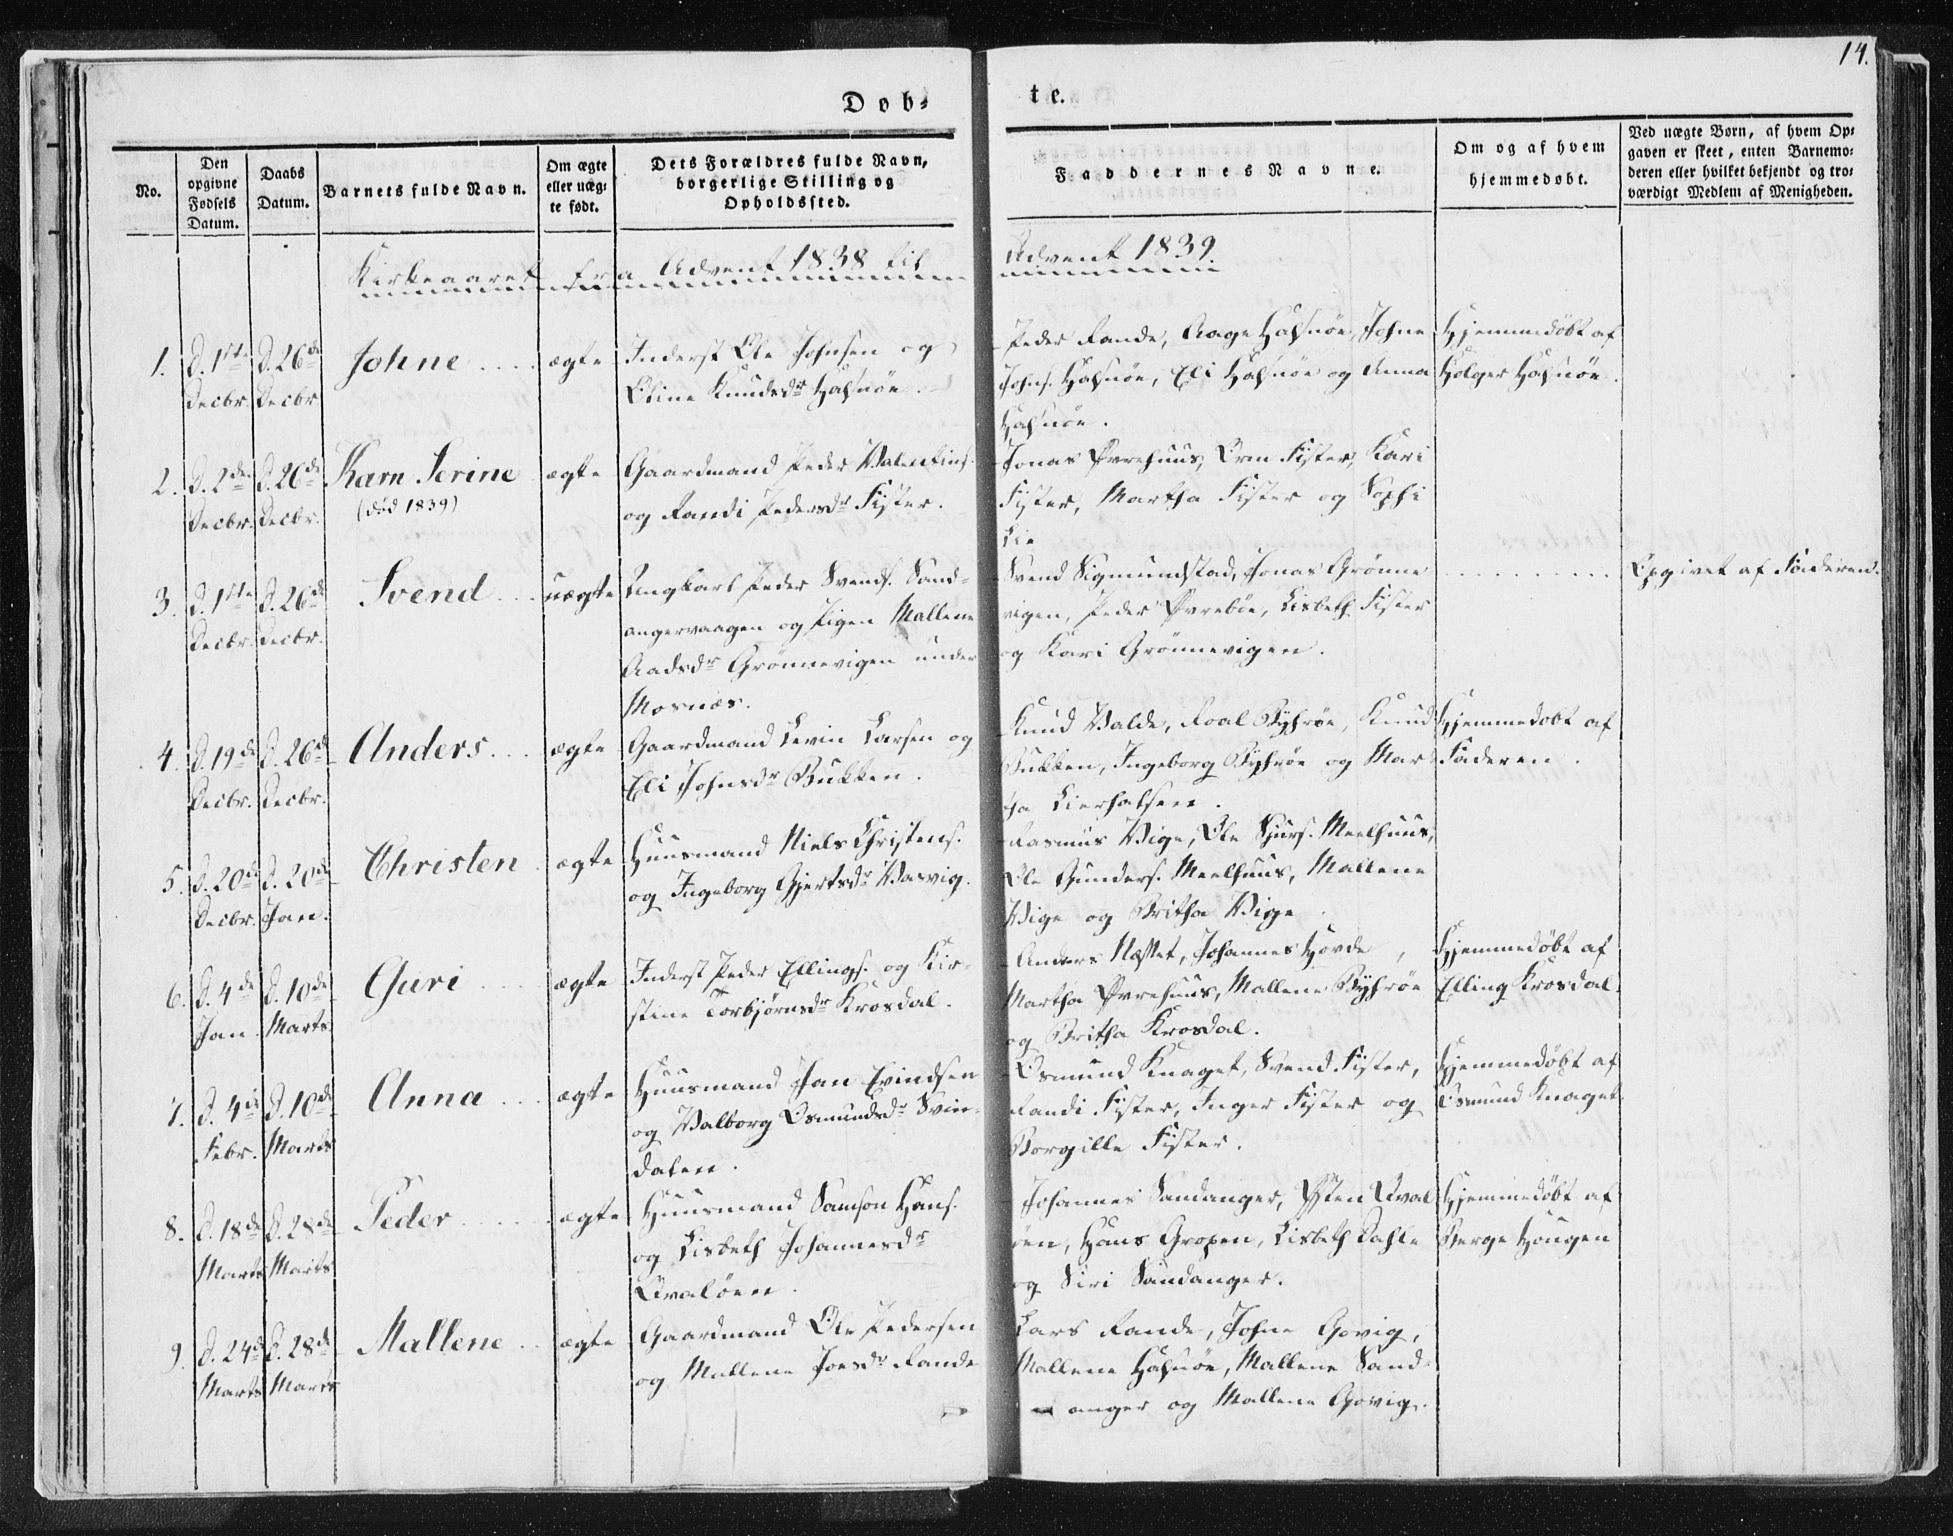 14.
Døb=
te.
No.
Den opgivne Fødsels Datum.
Daabs Datum.
Barnets fulde Navn.
Om ægte eller uæg= te født.
Dets Forældres fulde Navn, borgerlige Stilling og Opholdssted.
Faddernes Navne.
Om og af hvem hjemmedøbt.
Ved uægte Børn, af hvem Op= gaven er skeet, enten Barnemo= deren eller hvilket bekjendt og tro= værdigt Medlem af Menigheden.
Kirkeaaret fra Advent 1838 til
Advent 1839
1. d. 1ste Decbr. d. 26de Decbr. Johne .... ægte
Inderst Ole Johnsen og
Stine Knudsdr Halsnøe.
Peder Rande, Aage Halsnøe, Johne
Johns. Halsnøe, Eli Halsnøe og Anna
Halsnøe.
Hjemmedøbt af
Holger Halsnøe.
2. d. 2den Decbr. d. 26de Decbr. Karn Serine ægte
(død 1839)
Gaardmand Peder Valentins.
og Randi Pedersdr Fister.
Jonas Øvrehuus, Orm Fister, Kari
Fister, Martha Fister og Sophi
Lie
3. d. 1ste Decbr. d. 26de Decbr. Svend ... uægte
Ungkarl Peder Svends. Sand=
angervaagen og Pigen Mallene
Aadsdr Grønnevigen under
Mosnæs.
Svend Sigmundstad, Jonas Grønne
vigen, Peder Øvrebøe, Lisbeth Fister
og Kari Grønnevigen.
Opgivet af Faderen.
4. d. 19de Decbr. d. 26de Decbr. Anders ... ægte
Gaardmand Levin Larsen og
Eli Johnsdr Bukken.
Knud Valde, Roal Byhrøe, Knud
Bukken, Ingeborg Byhrøe og Mar=
tha Lierhalsen.
Hjemmedøbt af
Faderen.
5. d. 20de Decbr. d. 20de Jan. Christen . ægte
Huusmand Niels Christens.
og Ingeborg Gjertsdr Vasvig.
Rasmus Vige, Ole Sjurs. Meelhuus,
Ole Gunders. Meelhuus, Mallene
Vige og Britha Vige.
6. d. 4de Jan. d. 10de Marts Guri ... ægte
Inderst Peder Ellings. og Kir=
stene Torbjørnsdr Krosdal.
Anders Næsset, Johannes Hovde,
Martha Øvrehuus, Mallene Byhrøe
og Britha Krosdal.
Hjemmedøbt af
Elling Krosdal.
7. d. 4de Febr. d. 10de Marts Anna ... ægte
Huusmand Jan Evindsen
og Valborg Osmundsdr Svin=
dalen.
Osmund Knaget, Svend Fister,
Randi Fister, Inger Fister og
Borgille Fister.
Hjemmedøbt af
Osmund Knaget.
8. d. 18de Marts d. 28de Marts Peder ... ægte
Huusmand Samson Hans.
og Lisbeth Johannesdr
Qvaløen.
Johannes Sandanger, Østen Qval
øen, Hans Gropen, Lisbeth Dahle
og Siri Sandanger.
Hjemmedøbt af
Berge Hougen
9. d. 24de Marts d. 28de Marts Mallene .. ægte
Gaardmand Ole Pedersen
og Mallene Joesdr Rande
Lars Rande, Johne Govig,
Mallene Halsnøe, Mallene Sand=
anger og Mallene Govig.